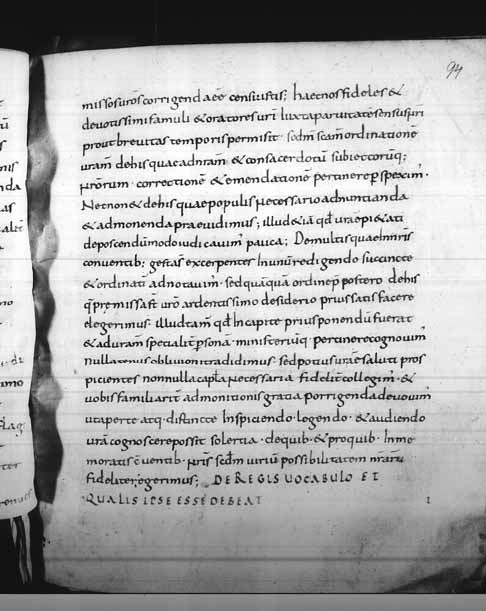 94
missos uros corrigenda eē censuistis; haec nos fideles &
deuotissimi famuli & oratores uri iuxta paruitatē sensus nri
prout breuitas temporis permisit · scdm scam ordinationē
uram de his quae ad nram & consacerdotū subiectorūq;
nrorum · correctionē & emendationē pertinere pspeximˀ ·
Necnon & de his quae populis necessario adnuntianda
& admonenda praeuidimus; illud &iā qd ura epi&ati
deposcendū modo iudicauimˀ pauca; De multis quae in nris
conuentib; gesta s excerpentes in unū redigendo succincte
& ordinatī adnotauimˀ · sed quāquā ordine p postero de his
q̄ premissa st uro ardentissimo desiderio prius satisfacere
elegerimus · illud tam̄ qd in capite prius ponendū fuerat
& ad uram specialit psonā · ministeriūq · pertinere cognouimˀ
nullatenus obliuioni tradidimus · sed potius urae saluti pros
picientes nonnulla capla necessaria fidelit collegimˀ · &
uobis familiarit admonitionis gratia porrigenda deuouimˀ
ut aperte atq · distincte inspiciendo · legendo · & audiendo
ura cognoscere possit solertia · de quib · & pro quib · in me
moratis cuentib · nris scdm uiriū possibilitatem nrarū
fideliter egerimus; DE REGIS UOCABULO ET
QUALIS IPSE ESSE DEBEAT